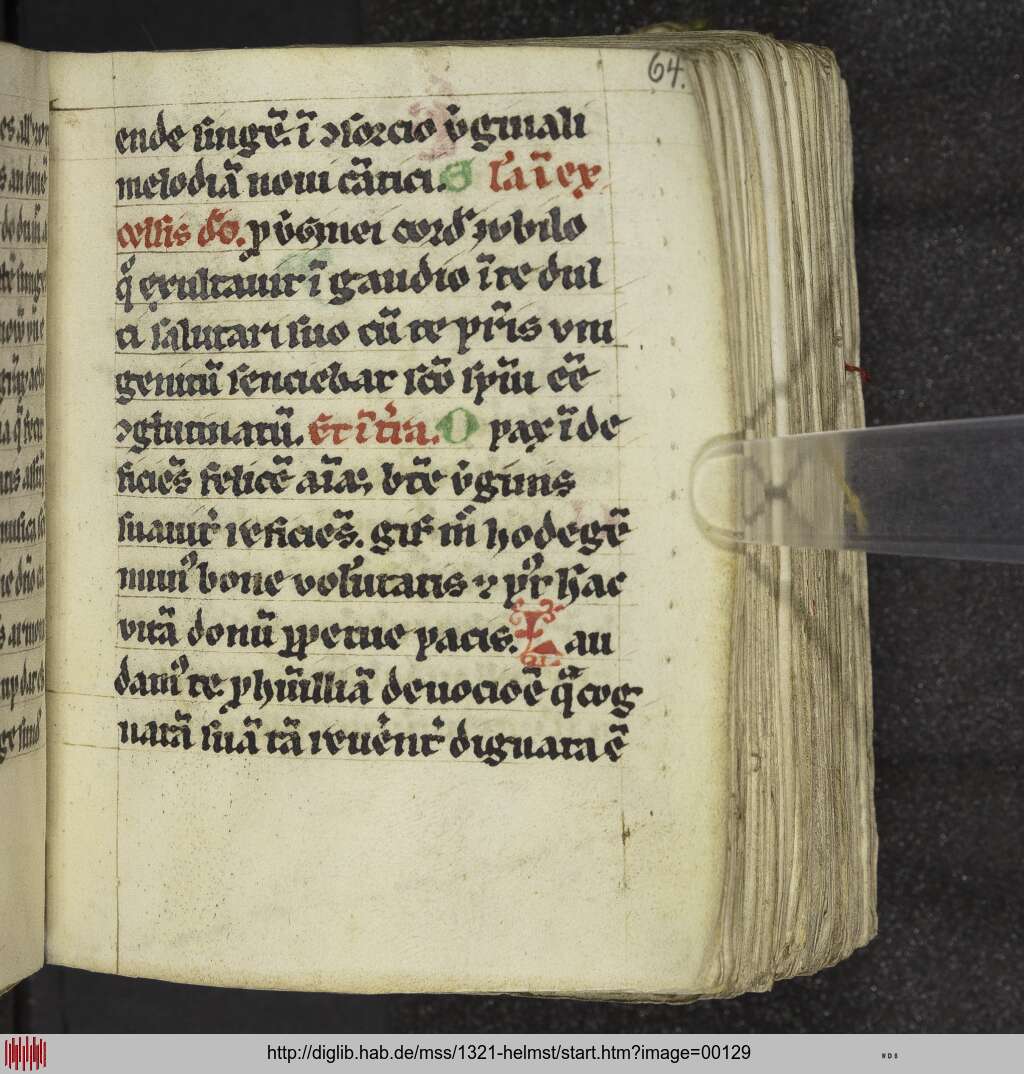 64.
ende singe͂. ı͂ ↄsorcio v͛ginali
melodia͂ noui ca͂tici. G l͛a i͂ ex
celsis d͛o. p v͛ginei cord͛ iubilo
q͛ exultauit i͂ gaudio i͂ te dul
ci salutari suo cu͂ te pr͛is vni
genitu͂ senciebat sc͂o sp͂m e͂e
ↄglutinatu͂. Et i͂ t͛ra. O pax i͂de
ficie͂s felice͂ a͂i͂aꝫ bt͂e v͛ginis
suauit͛ reficie͂s. gis͛ m͛ hodege͂
mun͛ bone volu͂tatis ⁊ p͛t hac
vita͂ donu͂ ꝑpetue pacis. Lau
dam͛ te. p hu͂illia͂ deuocioe͂ q͂ cog
nata͂ sua͂ ta͂ reue͛nt͛ dignata e͂
http://diglib.hab.de/mss/1321-helmst/start.htm?image=00129